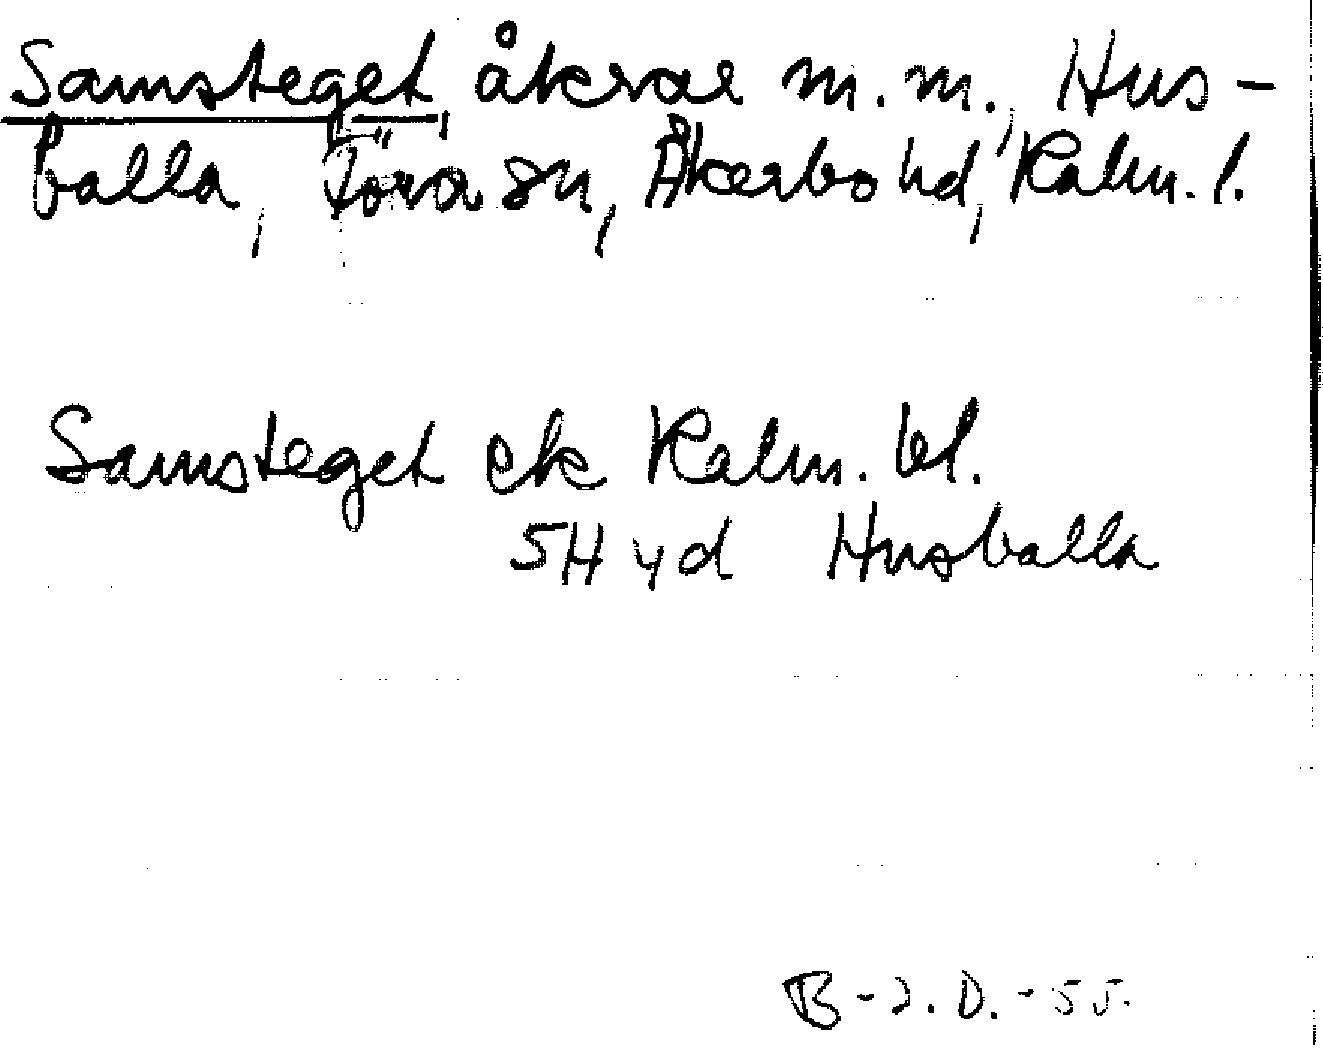 Samsteget, åkrar m.m., Hus-
balla, Föra sn, Åkerbo hd, Kalm. l.
Samsteget ek Kalm. bl.
5H yd Husballa
B-J.D.-55.